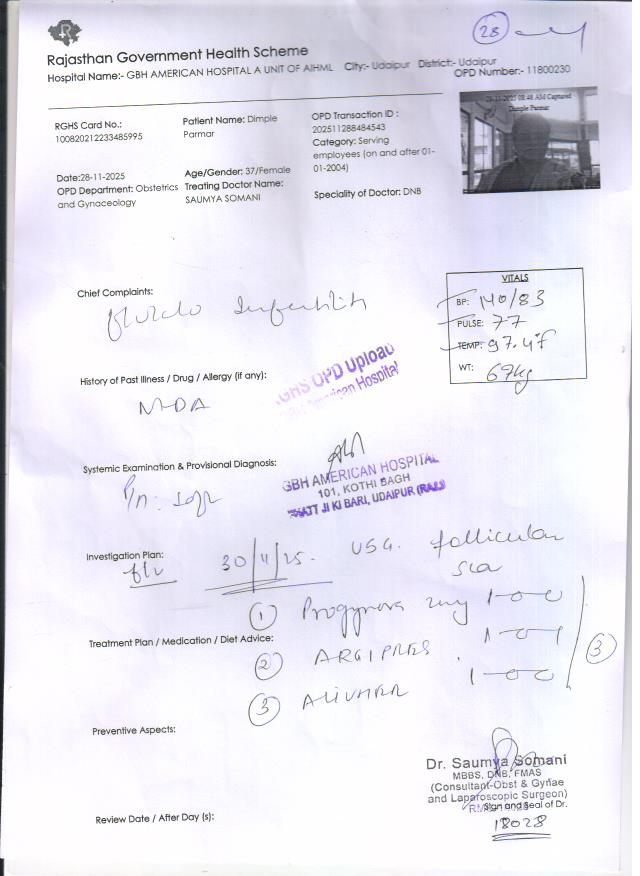 28
Rajasthan Government Health Scheme
Hospital Name:- GBH AMERICAN HOSPITAL A UNIT OF AIHML City:- Udaipur District:- Udaipur
OPD Number:- 11800230
28-11-2025 08:48 AM Captured
Dimple Parmar
RGHS Card No.:
100820212233485995
Patient Name: Dimple
Parmar
OPD Transaction ID :
202511288484543
Category: Serving
employees (on and after 01-
01-2004)
Date:28-11-2025
OPD Department: Obstetrics
and Gynaceology
Age/Gender: 37/Female
Treating Doctor Name:
SAUMYA SOMANI
Speciality of Doctor: DNB
Chief Complaints:
Infertility
VITALS
BP: 140/83
PULSE: 77
TEMP: 97.4°f
WT: 67kg
History of Past Illness / Drug / Allergy (if any):
RGHS OPD Upload
GBH American Hospital
Systemic Examination & Provisional Diagnosis:
GBH AMERICAN HOSPITAL
101, KOTHI BAGH
BHATT JI KI BARI, UDAIPUR (RAJ.)
Investigation Plan:
30/11/25. USG. follicular
① Progynova 2mg 1-0-0
Treatment Plan / Medication / Diet Advice:
② ARGIPREG 1-0-1
③ 1-0-0
③
Preventive Aspects:
Dr. Saumya Somani
MBBS, DNB, FMAS
(Consultant-Obst & Gynae
and Laparoscopic Surgeon)
Sign and Seal of Dr.
18028
Review Date / After Day (s):